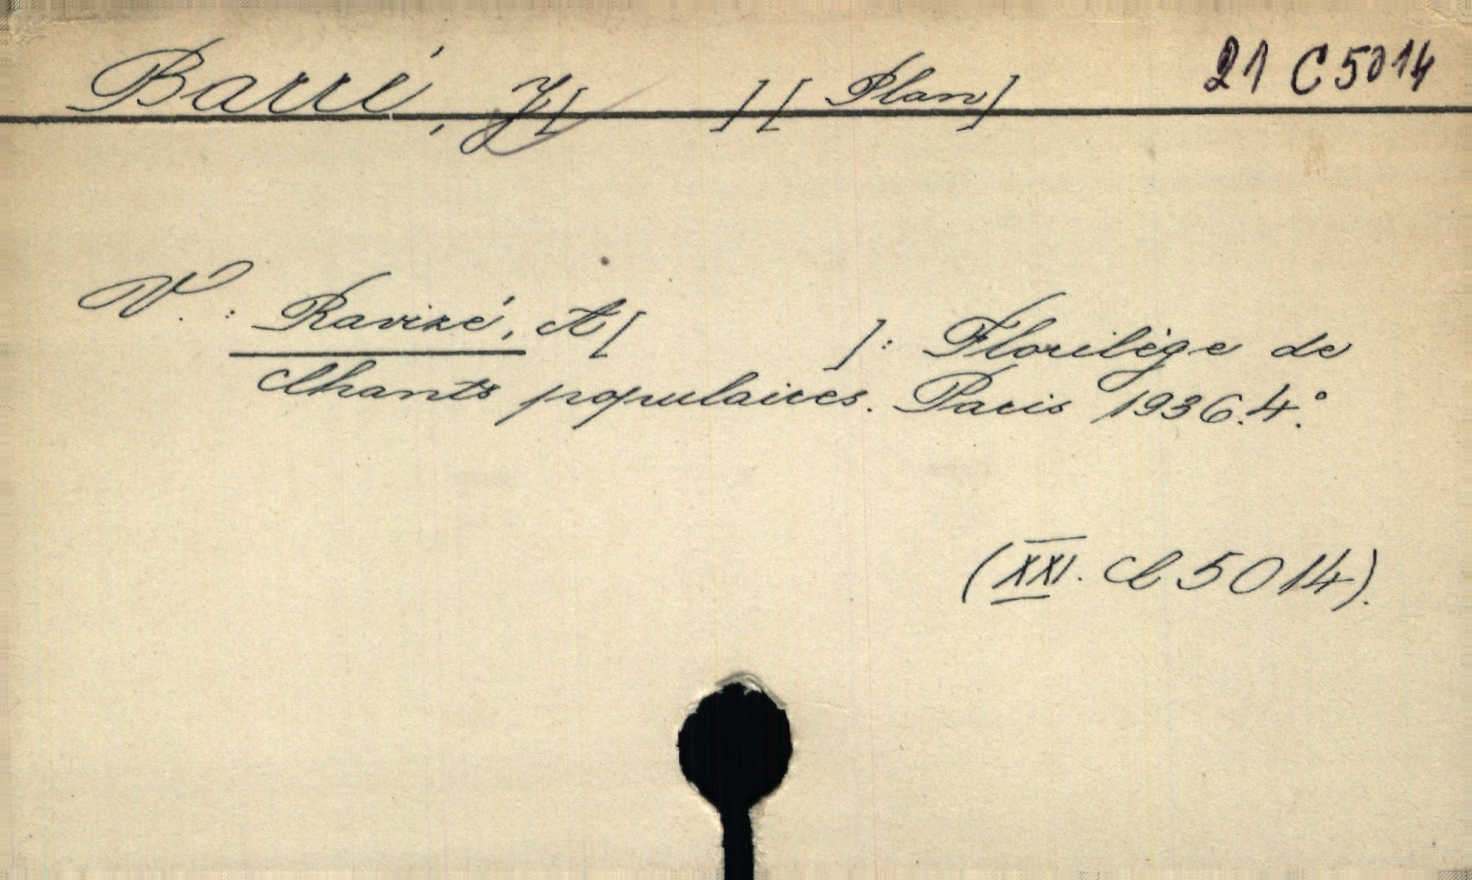 Barré, J[ ] [Plan] 21 C 5014
V.: Ravizé, A[ ]: Florilège de
Chants populaires. Paris 1936. 4.°
(XXI. C 5014).